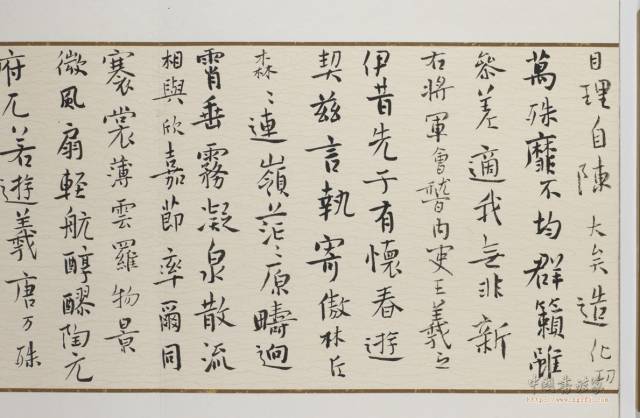 目理自陳大矣造化功
萬殊靡不均群籟雖
參差適我無非新
右將軍會稽內史王羲之
伊昔先子有懷春遊
契茲言執寄傲林丘
森〻連嶺茫〻原疇逈
霄垂霧凝泉散流
相與欣嘉節率爾同
褰裳薄雲羅物景
微風扇輕航醇醪陶元
府兀若遊羲唐万殊